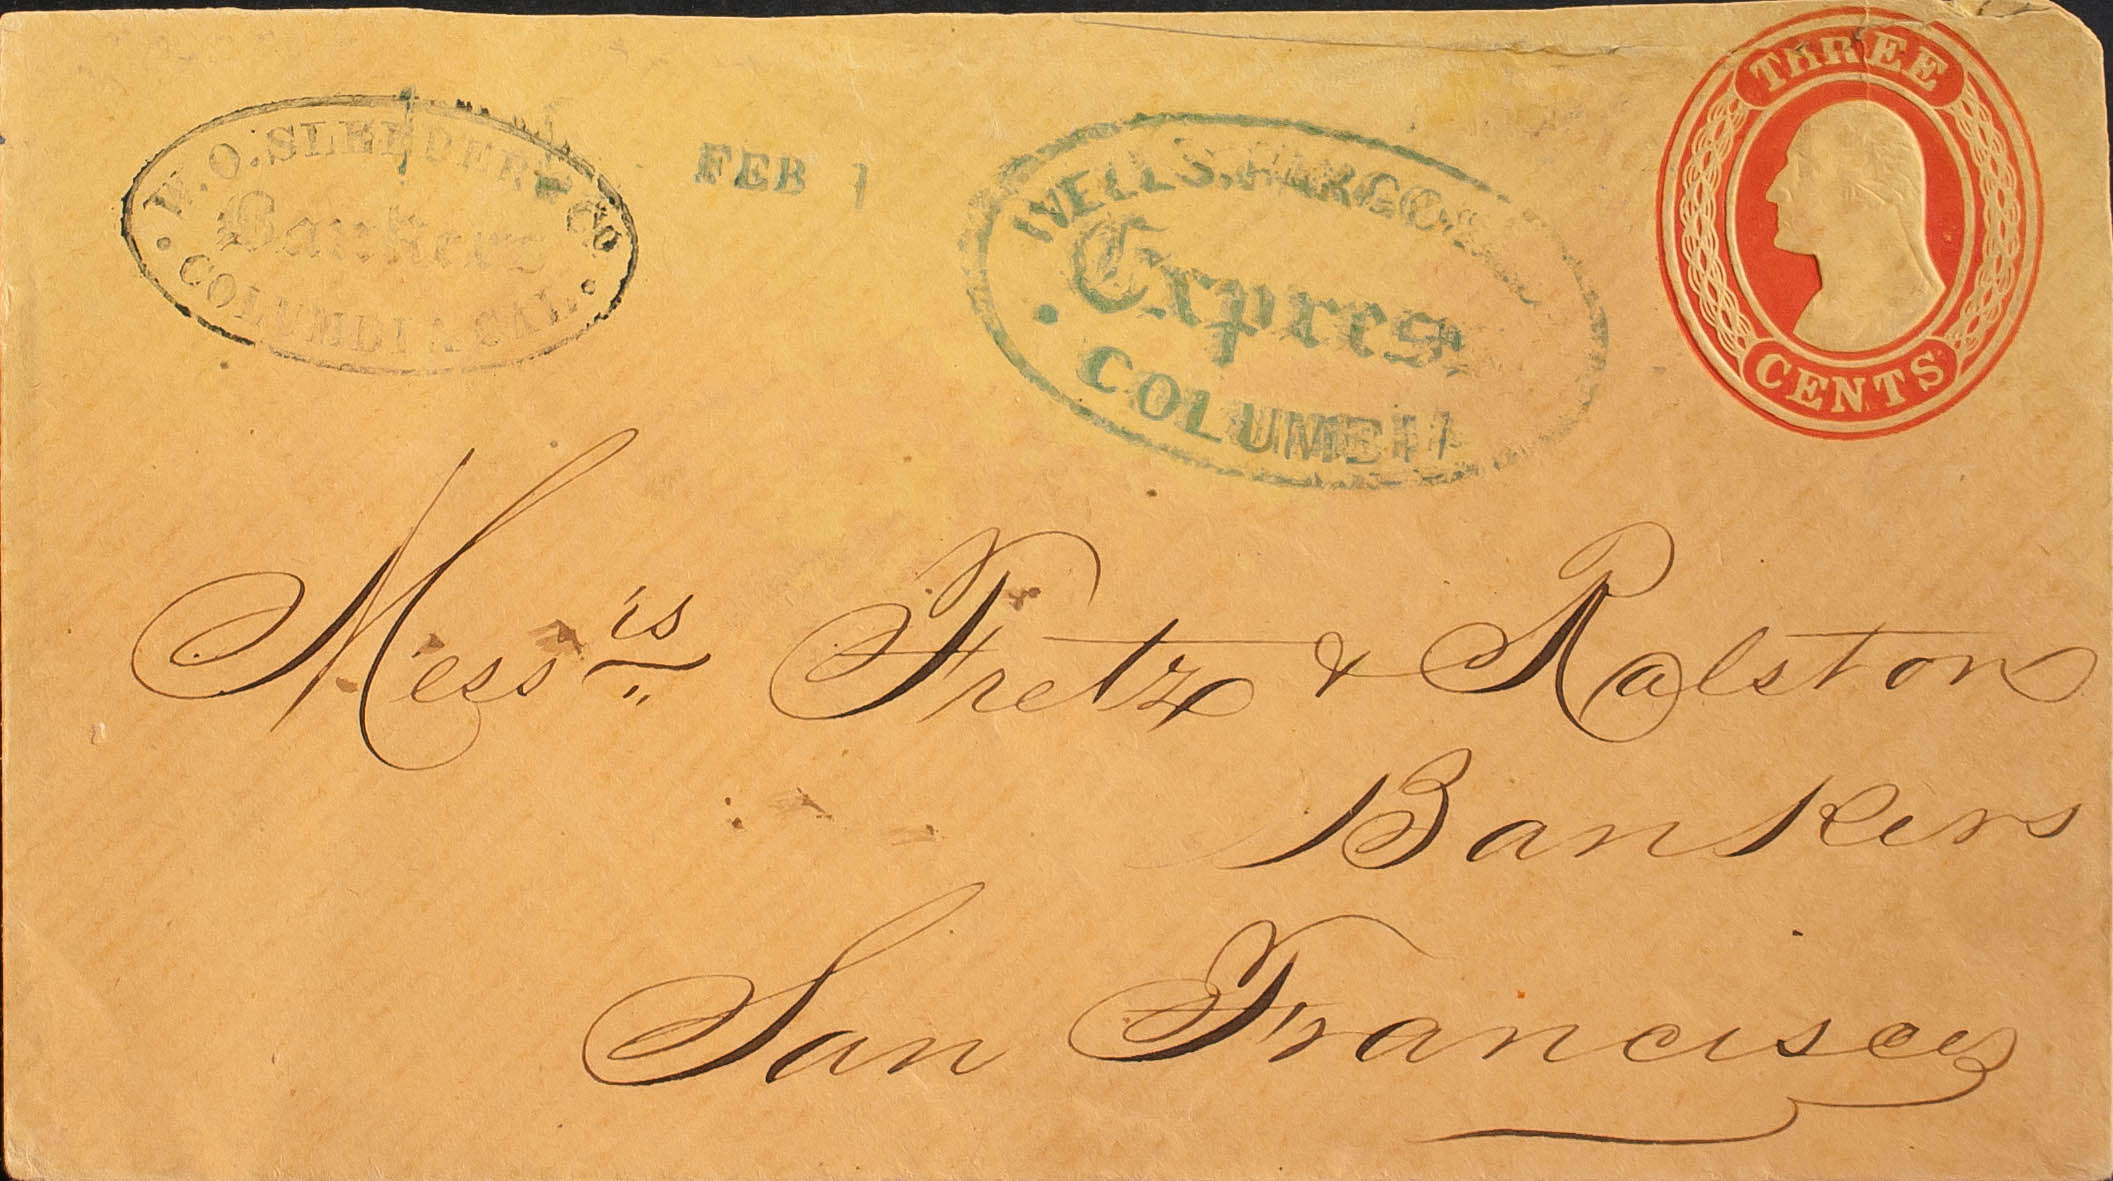 W. O. SLEEPER & Co
Bankers
COLUMBIA CAL.
FEB 1
WELLS, FARGO
Express
COLUMBIA
THREE
CENTS
Messrs Fretz & Ralston
Bankers
San Francisco